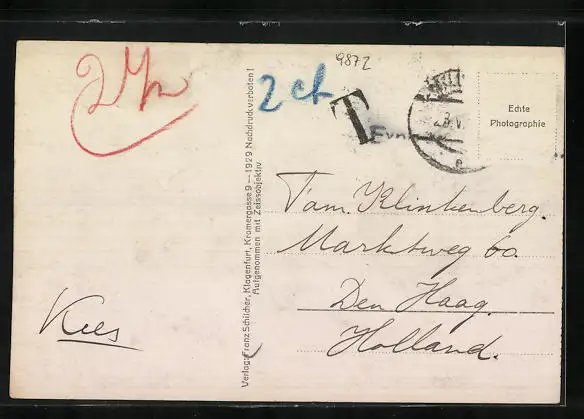 2 ch
9872
T
Echte
Photographie
Verlag: Franz Schilcher, Klagenfurt, Kramergasse 9 — 1929 Nachdruck verboten!
Aufgenommen mit Zeissobjektiv
Fam. Klinkenberg.
Marktweg 60.
Den Haag.
Holland.
Kees